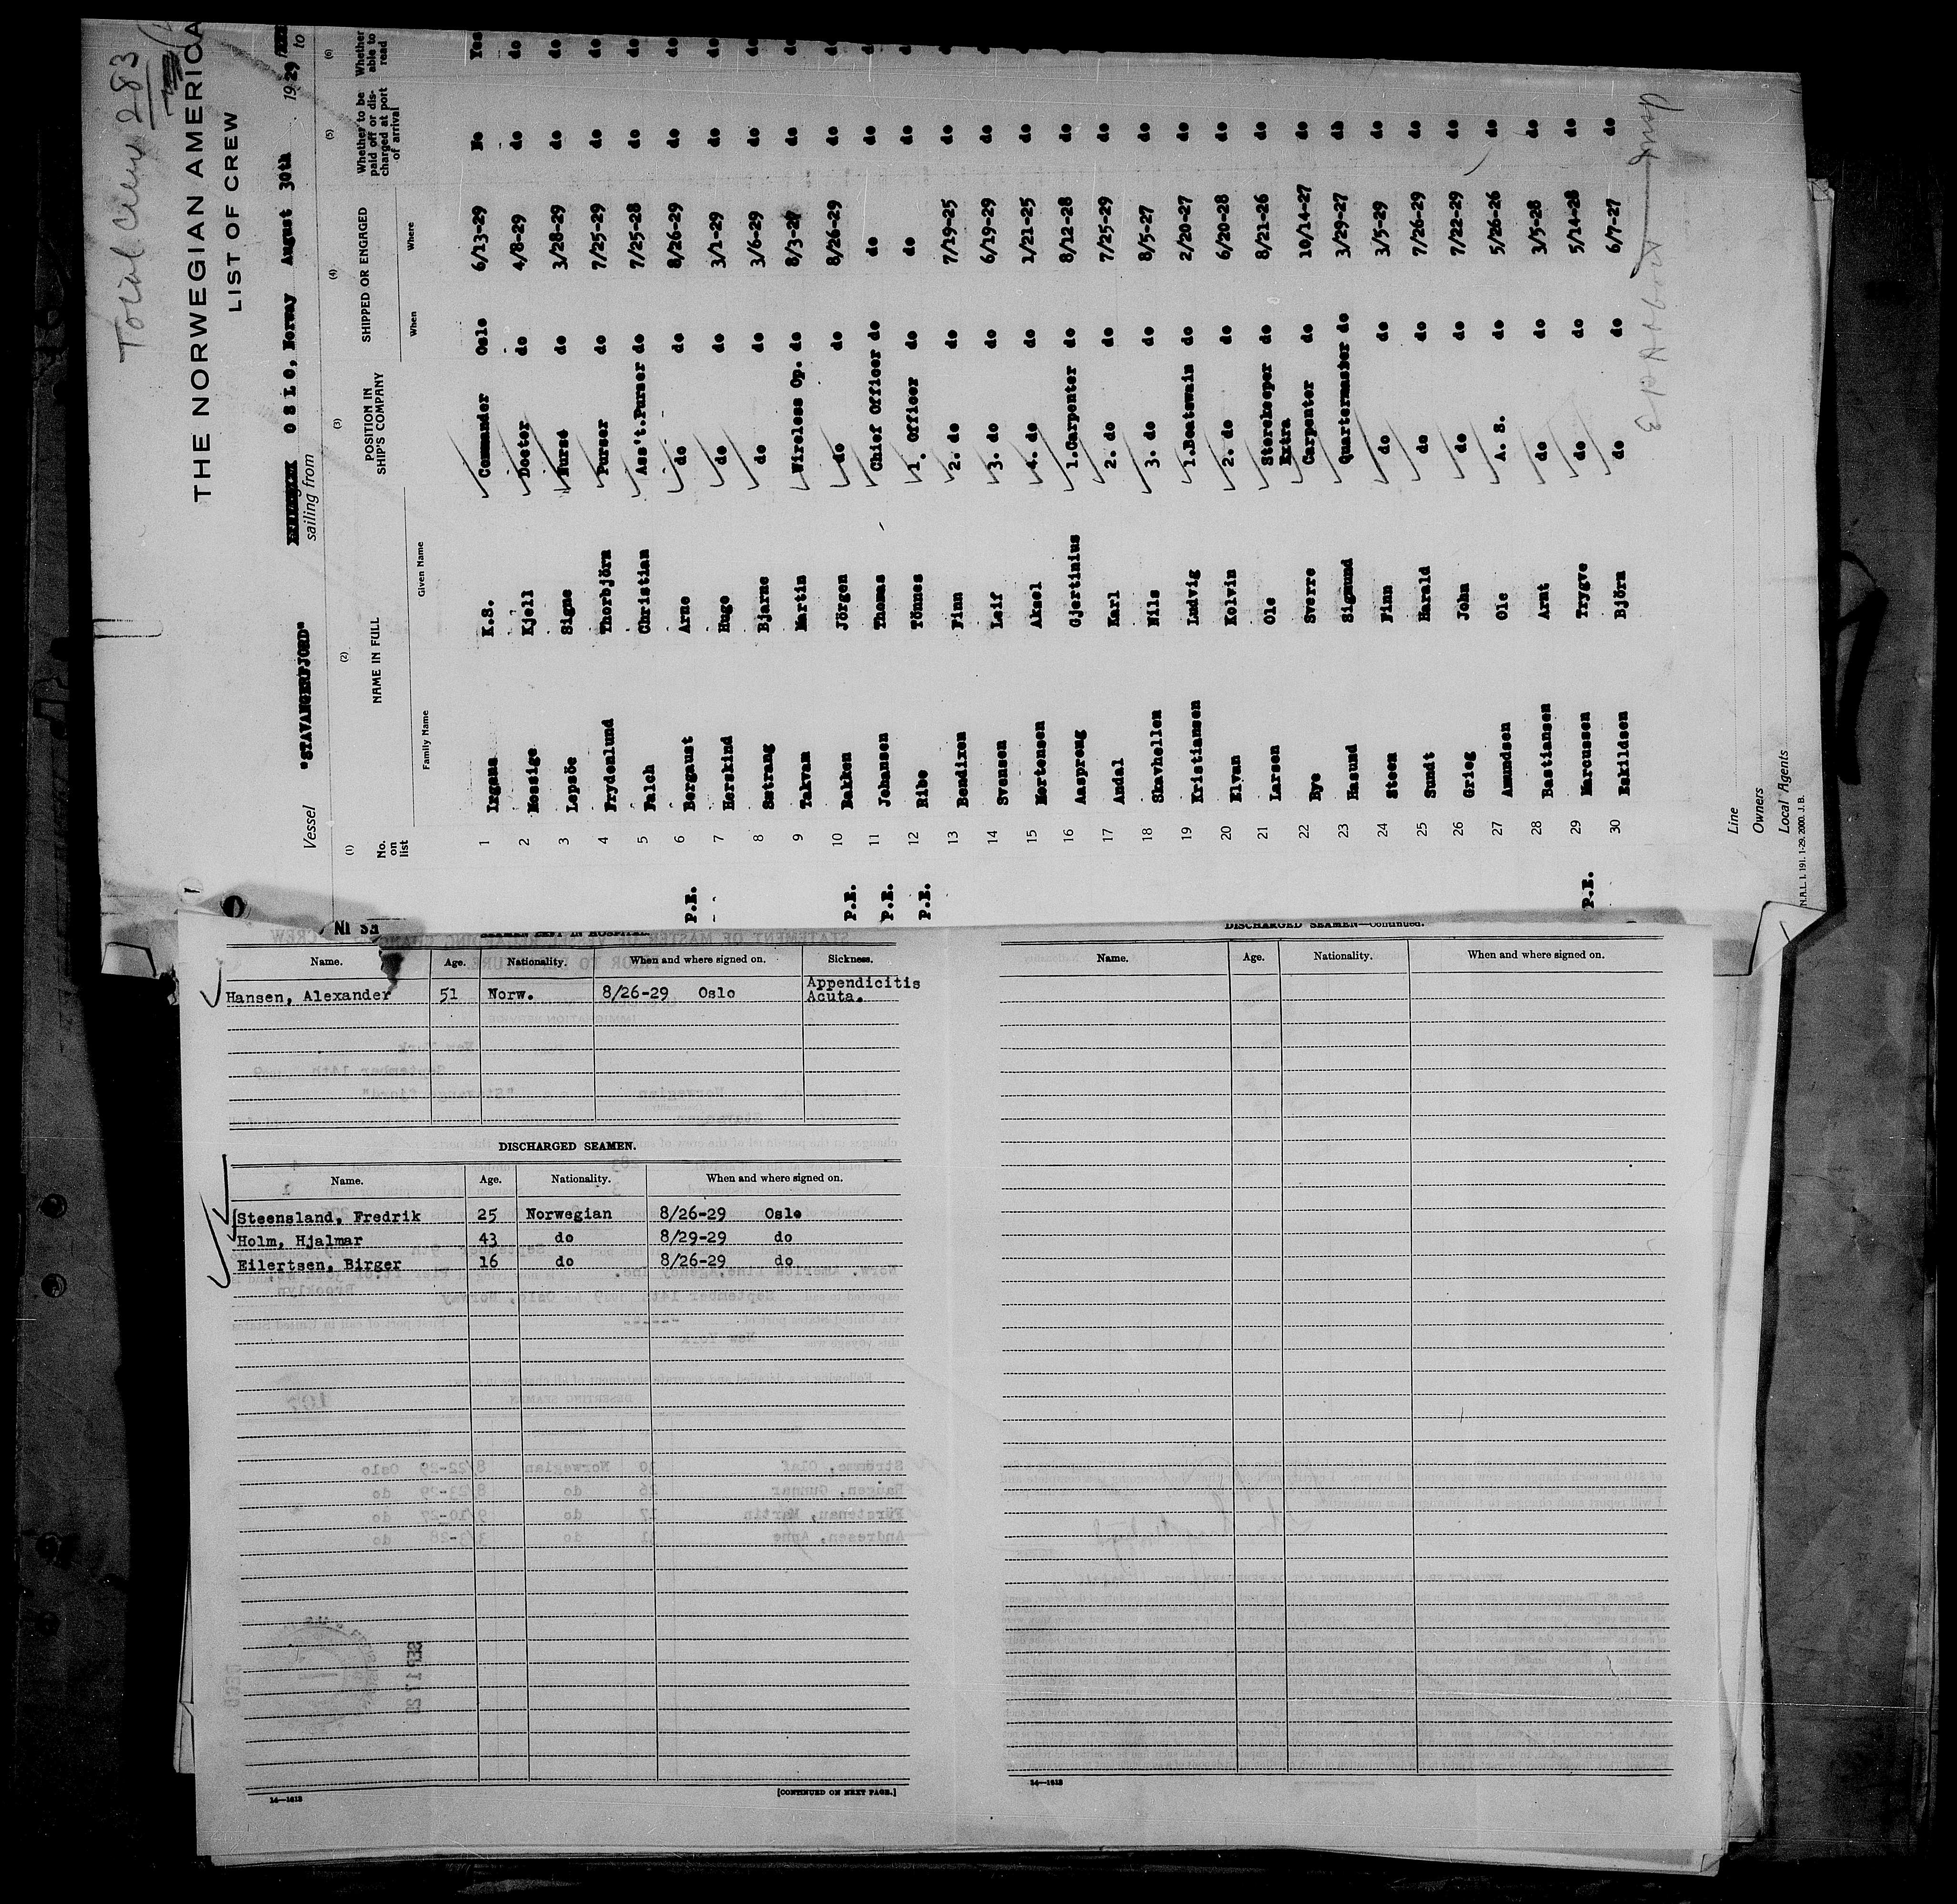 Total Crew 283
THE NORWEGIAN AMERICA
LIST OF CREW
Vessel "STAVANGERFJORD" sailing from OSLO, Norway August 30th 1929 to
(1) (2) (3) (4) (5) (6)
No. on list NAME IN FULL POSITION IN SHIP'S COMPANY SHIPPED OR ENGAGED Whether to be paid off or discharged at port of arrival Whether able to read
Family Name Given Name When Where
1 Irgens K.S. Commander Oslo 6/13-29 No Yes
2 Hossige Kjell Doctor do 4/8-29 do do
3 Lepsöe Signe Nurse do 3/28-29 do do
4 Frydenlund Thorbjörn Purser do 7/25-29 do do
5 Falch Christian Ass't.Purser do 7/25-28 do do
P.E. 6 Bergaust Arne do do 8/26-29 do do
7 Herskind Hugo do do 3/1-29 do do
8 Sætrang Bjarne do do 3/6-29 do do
9 Takvam Martin Wireless Op. do do do
P.E. 10 Bakken Jörgen do do 8/26-29 do do
P.E. 11 Johansen Thomas Chief Officer do do do do
P.E. 12 Ribe Tönnes 1. Officer do do do do
13 Bendixen Finn 2. do do 7/19-25 do
14 Svensen Leif 3. do do 6/19-29 do
15 Mortensen Aksel 4. do do 1/21-25 do
16 Aaspreng Gjertinius 1.Carpenter do 8/12-28 do
17 Andal Karl 2. do do 7/25-29 do
18 Skavhellen Nils 3. do do 8/5-27 do
19 Kristiansen Ludvig 1.Boatswain do 2/20-27 do
20 Elvan Kolvin 2. do do 6/20-28 do
21 Larsen Ole Storekeeper do 8/21-26 do
22 Bye Sverre Extra Carpenter do 10/14-27 do
23 Hasund Sigmund Quartermaster do 3/29-27 do
24 Steen Finn do do 3/5-29 do
25 Sundt Harald do do 7/26-29 do
26 Grieg John do do 7/22-29 do
27 Amundsen Ole A. S. do 5/26-26 do
28 Bastiansen Arnt do do 3/5-28 do
P.E. 29 Marcussen Trygve do do 5/14-28 do
30 Eskildsen Björn do do 6/7-27 do
Line
Owners
Local Agents
N.A.L. I. 191. 1-29. 2000. J. B.
SEAMEN LEFT IN HOSPITAL.
Name. Age. Nationality. When and where signed on. Sickness.
Hansen, Alexander 51 Norw. 8/26-29 Oslo Appendicitis
Acuta.
DISCHARGED SEAMEN.
Name. Age. Nationality. When and where signed on.
Steensland, Fredrik 25 Norwegian 8/26-29 Oslo
Holm, Hjalmar 43 do 8/29-29 do
Eilertsen, Birger 16 do 8/26-29 do
14—1613
[CONTINUED ON NEXT PAGE.]
DISCHARGED SEAMEN—Continued.
Name. Age. Nationality. When and where signed on.
14—1613